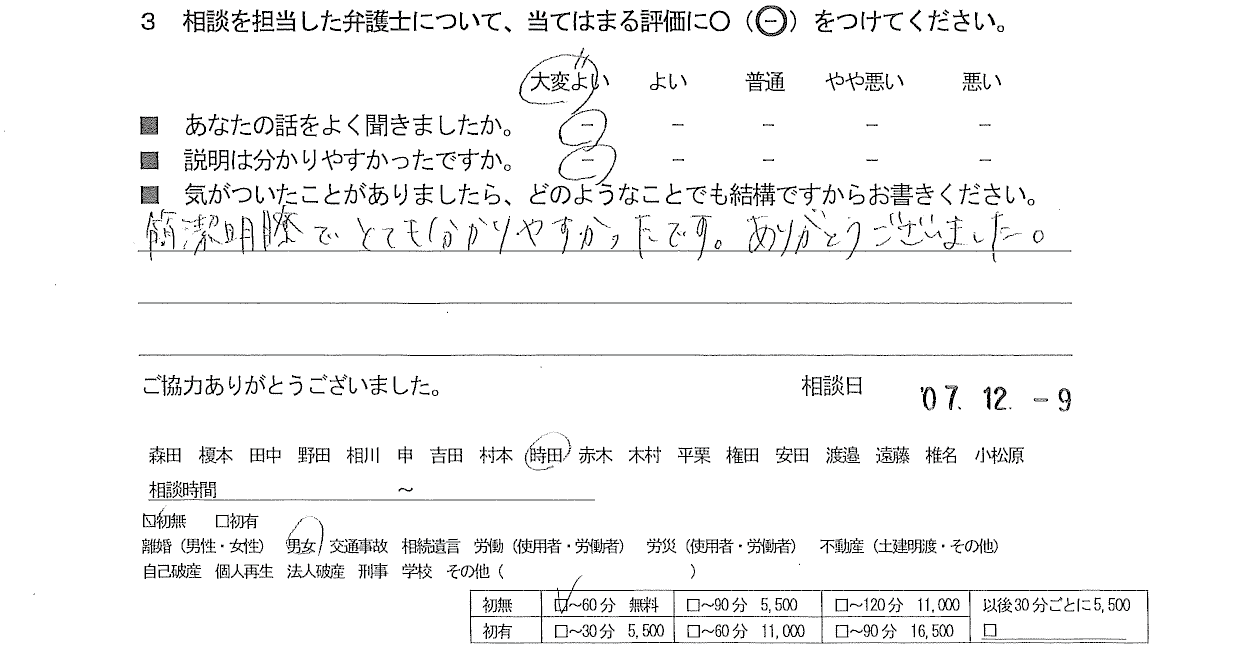 3 相談を担当した弁護士について、当てはまる評価に○（⊖）をつけてください。
大変よい よい 普通 やや悪い 悪い
■ あなたの話をよく聞きましたか。 － － － － －
■ 説明は分かりやすかったですか。 － － － － －
■ 気がついたことがありましたら、どのようなことでも結構ですからお書きください。
簡潔明瞭でとても分かりやすかったです。ありがとうございました。
ご協力ありがとうございました。 相談日 '07. 12. -9
森田 榎本 田中 野田 相川 申 吉田 村本 時田 赤木 木村 平栗 権田 安田 渡邉 遠藤 椎名 小松原
相談時間 ～
☑初無 □初有
離婚（男性・女性） 男女 交通事故 相続遺言 労働（使用者・労働者） 労災（使用者・労働者） 不動産（土建明渡・その他）
自己破産 個人再生 法人破産 刑事 学校 その他（ ）
初無 ☑～60分 無料 □～90分 5,500 □～120分 11,000 以後30分ごとに5,500
初有 □～30分 5,500 □～60分 11,000 □～90分 16,500 □